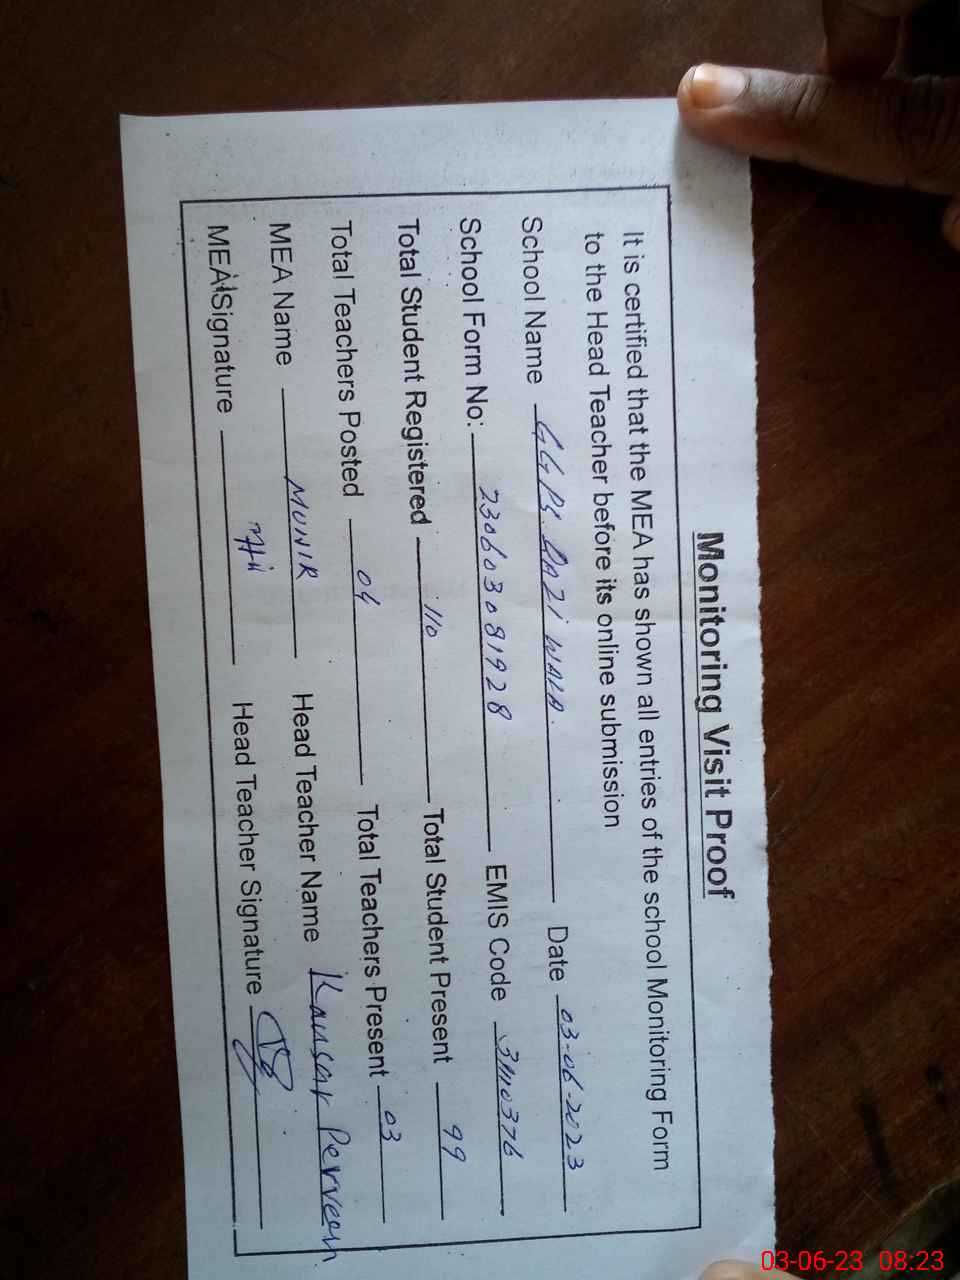 Monitoring Visit Proof
It is certified that the MEA has shown all entries of the school Monitoring Form
to the Head Teacher before its online submission
School Name GGPS RAZI WALA. Date 03-06-2023
School Form No: 23060308 1928 EMIS Code 31110376
Total Student Registered 110 Total Student Present 99
Total Teachers Posted 04 Total Teachers Present 03
MEA Name MUNIR Head Teacher Name Kausar Perveen
MEA Signature Head Teacher Signature
03-06-23 08:23